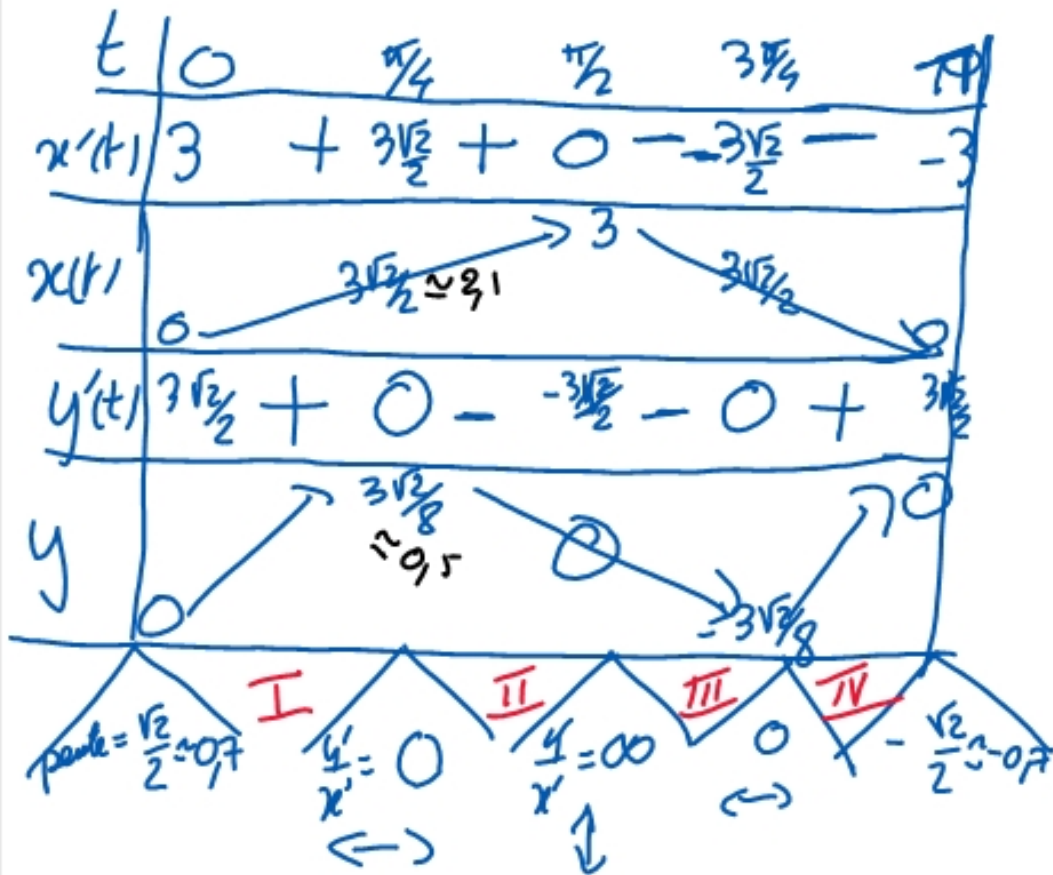 t 0 π/4 π/2 3π/4 π
x'(t) 3 + 3√2/2 + 0 − −3√2/2 − −3
x(t) 0 3√2/2 ≃2,1 3 3√2/2 0
y'(t) 3√2/2 + 0 − −3√2/2 − 0 + 3√2/2
y 0 3√2/8 ≃0,5 0 −3√2/8 0
I II III IV
pente = √2/2 ≃0,7 y'/x' = 0 y'/x' = ∞ 0 −√2/2 ≃ −0,7
↔ ↕ ↔